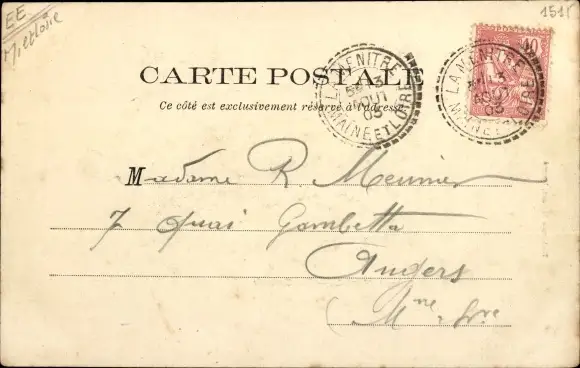 EE
1515
10
CARTE POSTALE
Ce côté est exclusivement réservé à l'adresse
LA MENITRE
13
AOUT
03
MAINE ET LOIRE
LA MENITRE
13
AOUT
03
MAINE ET LOIRE
Madame R. Meunier
7 quai Gambetta
Angers
(Mne-Lre